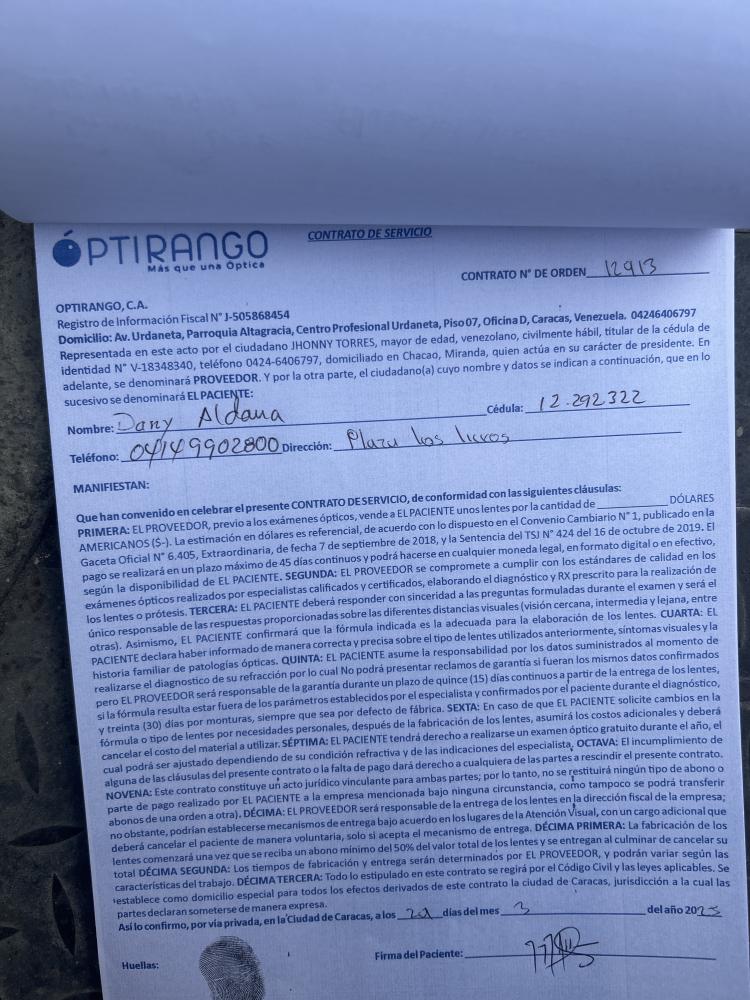 CONTRATO DE SERVICIO
ÓPTIRANGO
Más que una Óptica
CONTRATO N° DE ORDEN 12913
OPTIRANGO, C.A.
Registro de Información Fiscal N° J-505868454
Domicilio: Av. Urdaneta, Parroquia Altagracia, Centro Profesional Urdaneta, Piso 07, Oficina D, Caracas, Venezuela. 04246406797
Representada en este acto por el ciudadano JHONNY TORRES, mayor de edad, venezolano, civilmente hábil, titular de la cédula de
identidad N° V-18348340, teléfono 0424-6406797, domiciliado en Chacao, Miranda, quien actúa en su carácter de presidente. En
adelante, se denominará PROVEEDOR. Y por la otra parte, el ciudadano(a) cuyo nombre y datos se indican a continuación, que en lo
sucesivo se denominará EL PACIENTE:
Nombre: Dany Aldana Cédula: 12.292322
Teléfono: 04149902800 Dirección: Plaza los
MANIFIESTAN:
Que han convenido en celebrar el presente CONTRATO DE SERVICIO, de conformidad con las siguientes cláusulas:
PRIMERA: EL PROVEEDOR, previo a los exámenes ópticos, vende a EL PACIENTE unos lentes por la cantidad de ________ DÓLARES
AMERICANOS (S-). La estimación en dólares es referencial, de acuerdo con lo dispuesto en el Convenio Cambiario N° 1, publicado en la
Gaceta Oficial N° 6.405, Extraordinaria, de fecha 7 de septiembre de 2018, y la Sentencia del TSJ N° 424 del 16 de octubre de 2019. El
pago se realizará en un plazo máximo de 45 días continuos y podrá hacerse en cualquier moneda legal, en formato digital o en efectivo,
según la disponibilidad de EL PACIENTE. SEGUNDA: EL PROVEEDOR se compromete a cumplir con los estándares de calidad en los
exámenes ópticos realizados por especialistas calificados y certificados, elaborando el diagnóstico y RX prescrito para la realización de
los lentes o prótesis. TERCERA: EL PACIENTE deberá responder con sinceridad a las preguntas formuladas durante el examen y será el
único responsable de las respuestas proporcionadas sobre las diferentes distancias visuales (visión cercana, intermedia y lejana, entre
otras). Asimismo, EL PACIENTE confirmará que la fórmula indicada es la adecuada para la elaboración de los lentes. CUARTA: EL
PACIENTE declara haber informado de manera correcta y precisa sobre el tipo de lentes utilizados anteriormente, síntomas visuales y la
historia familiar de patologías ópticas. QUINTA: EL PACIENTE asume la responsabilidad por los datos suministrados al momento de
realizarse el diagnostico de su refracción por lo cual No podrá presentar reclamos de garantía si fueran los mismos datos confirmados
pero EL PROVEEDOR será responsable de la garantía durante un plazo de quince (15) días continuos a partir de la entrega de los lentes,
si la fórmula resulta estar fuera de los parámetros establecidos por el especialista y confirmados por el paciente durante el diagnóstico,
y treinta (30) días por monturas, siempre que sea por defecto de fábrica. SEXTA: En caso de que EL PACIENTE solicite cambios en la
fórmula o tipo de lentes por necesidades personales, después de la fabricación de los lentes, asumirá los costos adicionales y deberá
cancelar el costo del material a utilizar. SÉPTIMA: EL PACIENTE tendrá derecho a realizarse un examen óptico gratuito durante el año, el
cual podrá ser ajustado dependiendo de su condición refractiva y de las indicaciones del especialista. OCTAVA: El incumplimiento de
alguna de las cláusulas del presente contrato o la falta de pago dará derecho a cualquiera de las partes a rescindir el presente contrato.
NOVENA: Este contrato constituye un acto jurídico vinculante para ambas partes; por lo tanto, no se restituirá ningún tipo de abono o
parte de pago realizado por EL PACIENTE a la empresa mencionada bajo ninguna circunstancia, como tampoco se podrá transferir
abonos de una orden a otra). DÉCIMA: EL PROVEEDOR será responsable de la entrega de los lentes en la dirección fiscal de la empresa;
no obstante, podrían establecerse mecanismos de entrega bajo acuerdo en los lugares de la Atención Visual, con un cargo adicional que
deberá cancelar el paciente de manera voluntaria, solo si acepta el mecanismo de entrega. DÉCIMA PRIMERA: La fabricación de los
lentes comenzará una vez que se reciba un abono mínimo del 50% del valor total de los lentes y se entregan al culminar de cancelar su
total DÉCIMA SEGUNDA: Los tiempos de fabricación y entrega serán determinados por EL PROVEEDOR, y podrán variar según las
características del trabajo. DÉCIMA TERCERA: Todo lo estipulado en este contrato se regirá por el Código Civil y las leyes aplicables. Se
establece como domicilio especial para todos los efectos derivados de este contrato la ciudad de Caracas, jurisdicción a la cual las
partes declaran someterse de manera expresa.
Así lo confirmo, por vía privada, en la Ciudad de Caracas, a los 21 días del mes 3 del año 2025
Huellas:
Firma del Paciente: